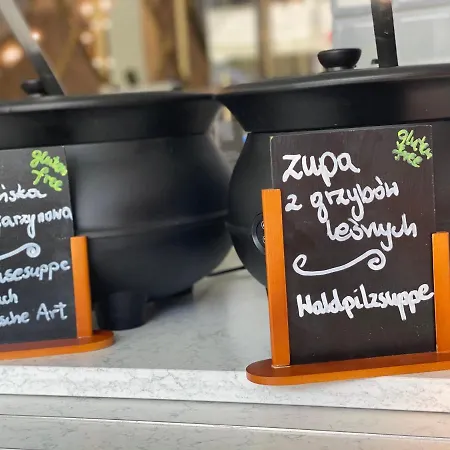 gluten
free
ńska
arzynowa
sesuppe
ach
sche Art
gluten
free
zupa
z grzybów
leśnych
Waldpilzsuppe